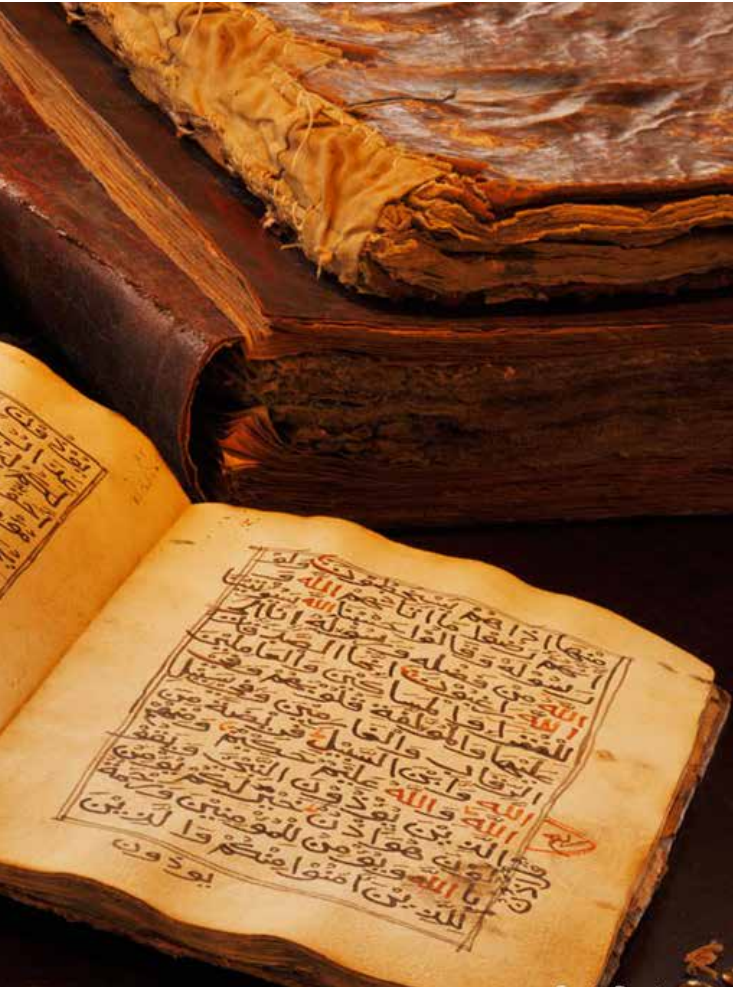 منها اذا هم يسخطون ولو
انهم رضوا ما اتاهم الله و
رسوله وقالوا حسبنا الله سيؤتينا
الله من فضله ورسوله انا الى
الله راغبون انما الصدقت
للفقراء والمساكين والعاملين
عليها والمؤلفة قلوبهم وفي
الرقاب والغارمين وفي سبيل
الله وابن السبيل فريضة من
الله والله عليم حكيم ومنهم
الذين يوذون النبي ويقو
لون هو اذن خير لكم يومن
قل اذن
بالله ويومن للمومنين ورحمة
للذين امنوا منكم والذين
يوذون